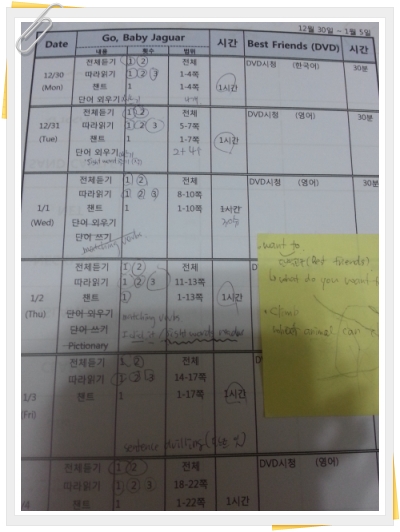 12월 30일 ~ 1월 5일
Date Go, Baby Jaguar 시간 Best Friends (DVD) 시간
내용 횟수 범위
12/30 (Mon)
전체듣기 1 2 전체
따라읽기 1 2 3 1-4쪽
챈트 1 1-4쪽
단어 외우기
1시간
DVD시청 (한국어) 30분
12/31 (Tue)
전체듣기 1 2 전체
따라읽기 1 2 3 5-7쪽
챈트 1 1-7쪽
단어 외우기
1시간
DVD시청 (영어) 30분
1/1 (Wed)
전체듣기 1 2 전체
따라읽기 1 2 3 8-10쪽
챈트 1 1-10쪽
단어 외우기
단어 쓰기
1시간
DVD시청 (영어) 30분
1/2 (Thu)
전체듣기 1 2 전체
따라읽기 1 2 3 11-13쪽
챈트 1 1-13쪽
단어 외우기
단어 쓰기
Pictionary
1시간
want to
(Best friends)
what do you want t
climb
what animal can
1/3 (Fri)
전체듣기 1 2 전체
따라읽기 1 2 3 14-17쪽
챈트 1 1-17쪽
1시간
sentence drilling
전체듣기 1 2 전체
따라읽기 1 2 3 18-22쪽
챈트 1 1-22쪽
1시간
DVD시청 (영어)